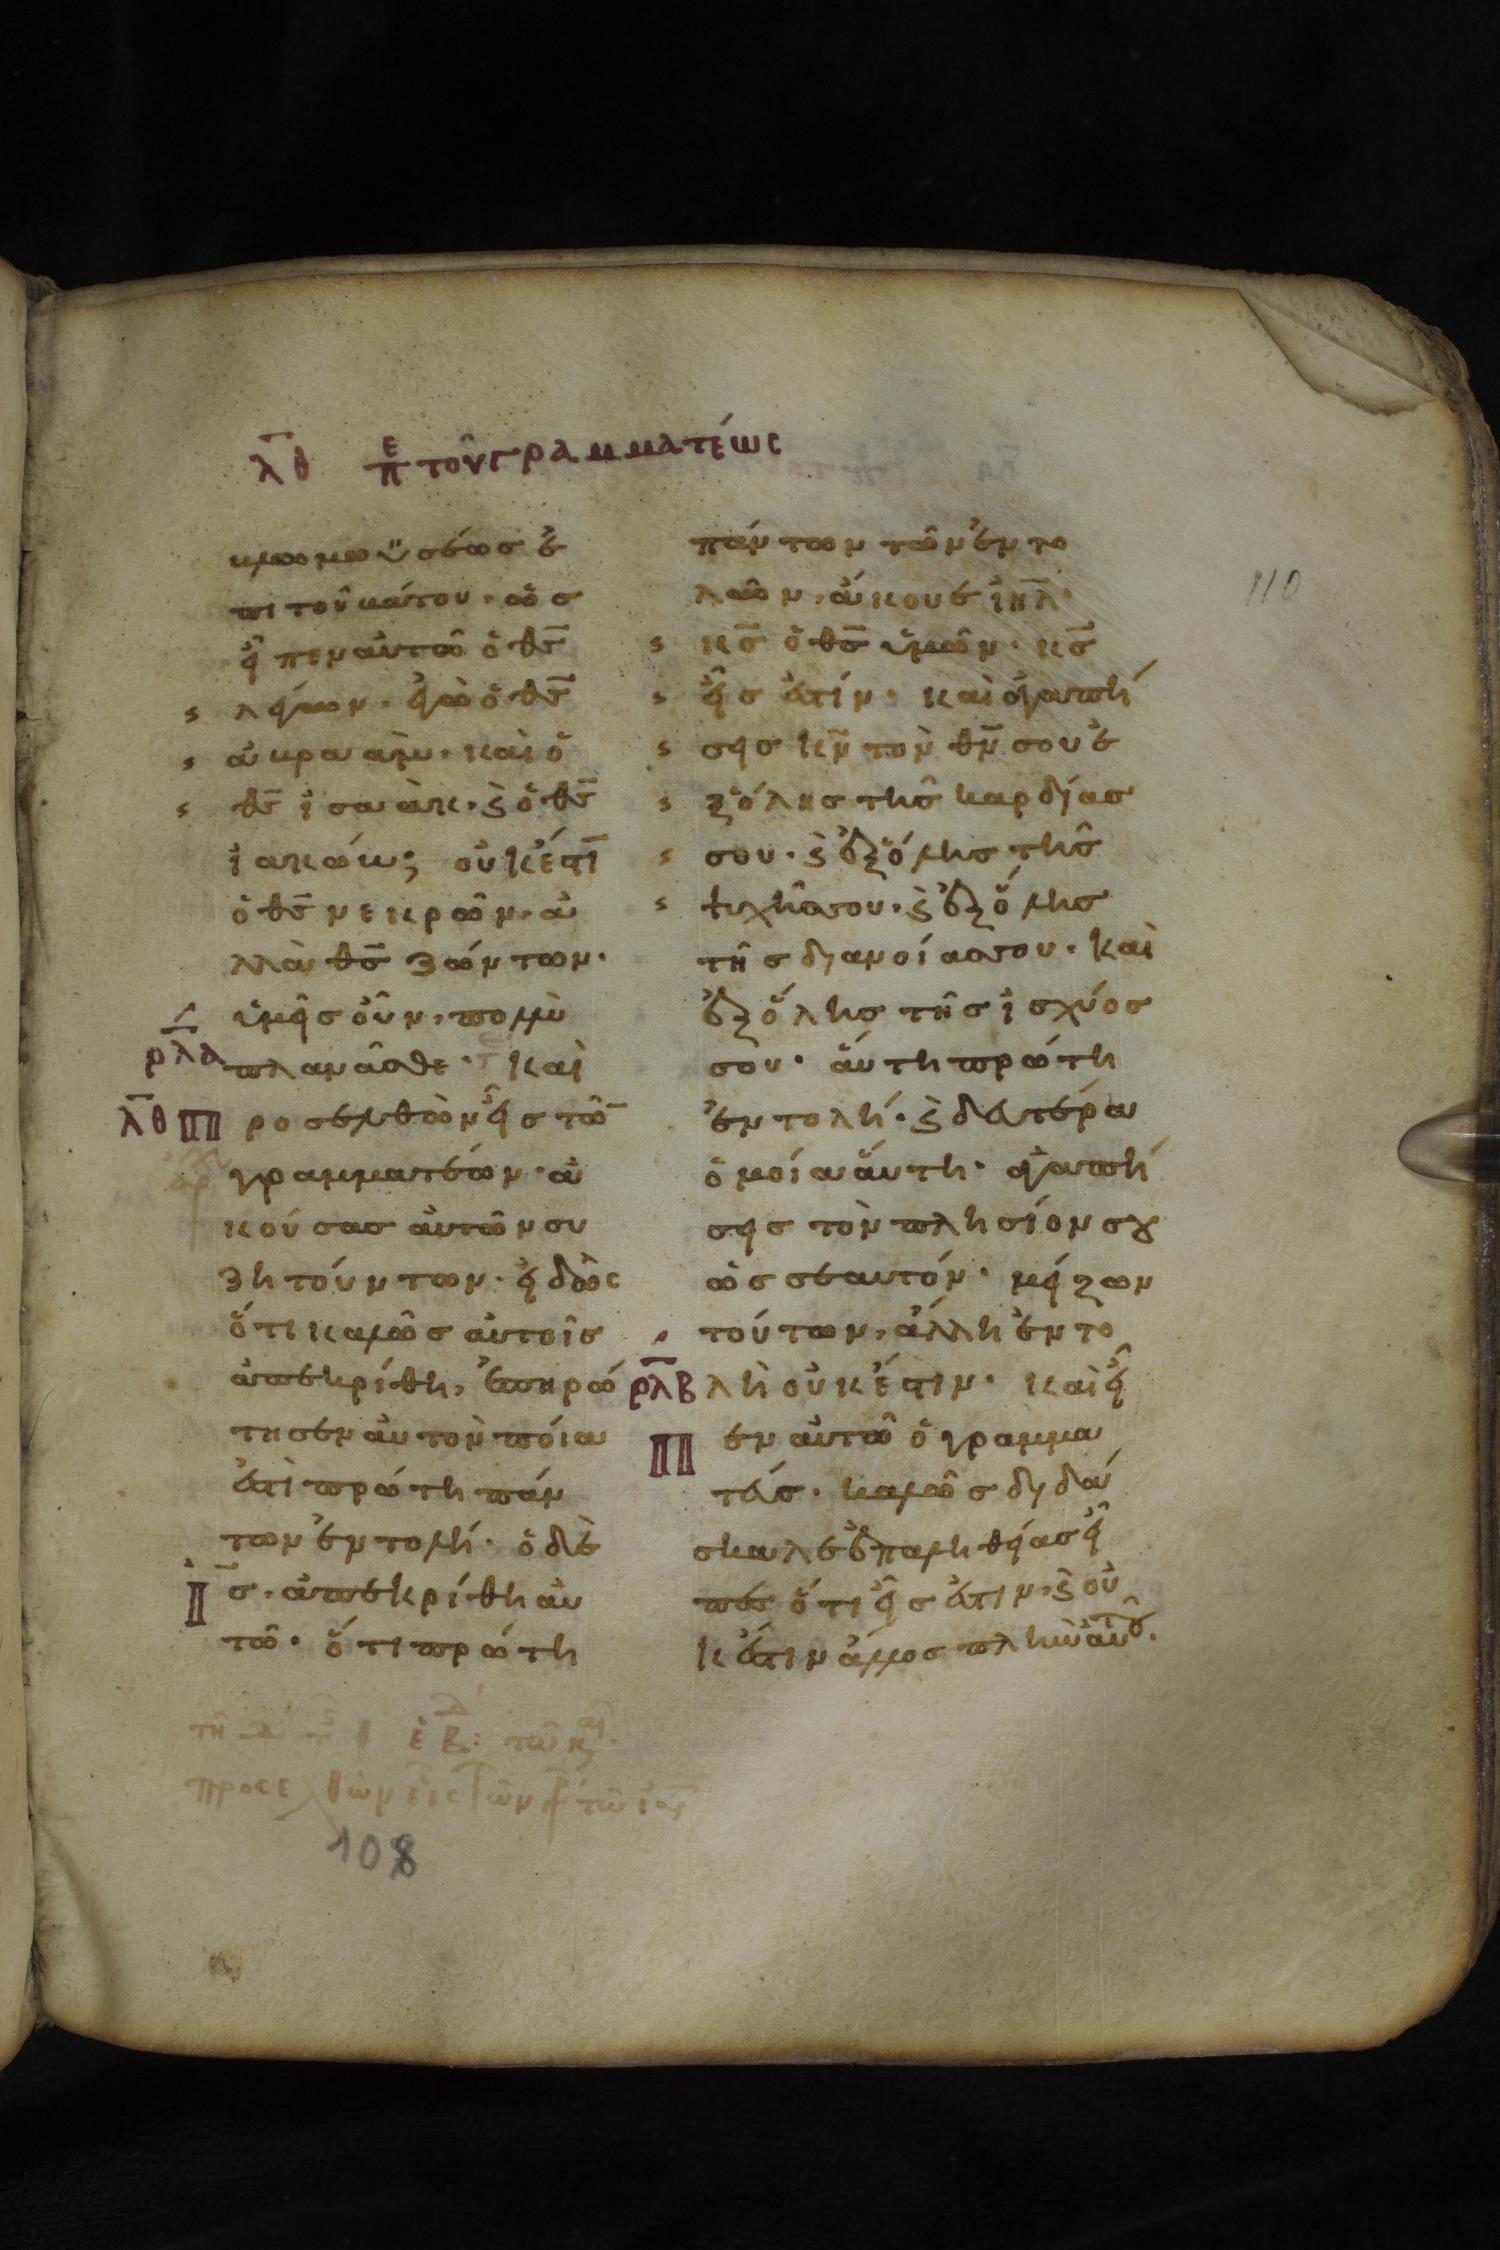 λ̅θ̅ πε τοῦ γραμματέως
βλω μωϋσέωσ ἐ
πὶ τοῦ βάτου· ὡσ
εἶπεν αὐτῶ ὁ θ̅σ̅
λέγων· ἐγὼ ὁ θ̅σ̅
ἀβρααμ· καὶ ὁ
θ̅σ̅ ἰσαὰκ· καὶ ὁ θ̅σ̅
ἰακώβ; οὐκ ἔστι
ὁ θ̅σ̅ νεκρῶν, ἀ
λλὰ θ̅σ̅ ζώντων·
ὑμεῖσ οὖν, πολὺ
ρ̅λ̅α̅ πλανᾶσθε· Καὶ
λ̅θ̅ Προσελθὼν εἷσ τῶ
γραμματέων· ἀ
κούσασ αὐτῶν συ
ζητούντων· εἰδὼς
ὅτι καλῶσ αὐτοῖσ
ἀπεκρίθη, ἐπηρώ
τησεν αὐτὸν ποία
ἐστὶ πρώτη πάν
των ἐντολή· ὁ δὲ
Ι̅σ̅· ἀπεκρίθη αὐ
τῶ· ὅτι πρώτη
πάντων τῶν ἐντο
λῶν, ἄκουε ἰη̅λ̅·
κ̅σ̅ ὁ θ̅σ̅ ὑμῶν· κ̅σ̅
εἷσ ἐστίν· καὶ ἀγαπή
σεισ κ̅ν̅ τὸν θ̅ν̅ σου ἐ
ξ ὅλησ τῆσ καρδίασ
σου· καὶ ἐξ ὅλησ τῆσ
ψυχῆσ σου· καὶ ἐξ ὅλησ
τῆσ διανοίασ σου· καὶ
ἐξ ὅλησ τῆσ ἰσχύοσ
σου· ἅυτη πρώτη
ἐντολή· καὶ δευτέρα
ὁμοία ἅυτη· ἀγαπή
σεισ τὸν πλησίον σου
ὡσ σεαυτόν· μείζων
τούτων, ἄλλη ἐντο
ρ̅λ̅β̅ λὴ οὐκ ἔστιν· καὶ εἶ
Πεν αὐτῶ ὁ γραμμα
τεύσ· καλῶσ διδά
σκαλε ἐπαληθείασ εἶ
πεσ ὅτι εἷσ ἐστιν, καὶ οὐ
κ ἔστιν ἄλλοσ πλὴν αὐτοῦ.
προσελθὼν εἷς τῶν
108
110